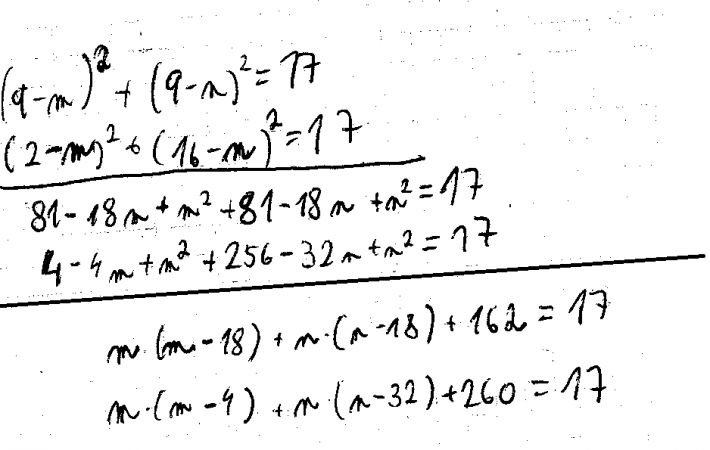 (9-m)² + (9-n)² = 17
(2-m)² + (16-n)² = 17
81-18m+m²+81-18n+n²=17
4-4m+m²+256-32n+n²=17
m·(m-18)+n·(n-18)+162=17
m·(m-4)+n(n-32)+260=17